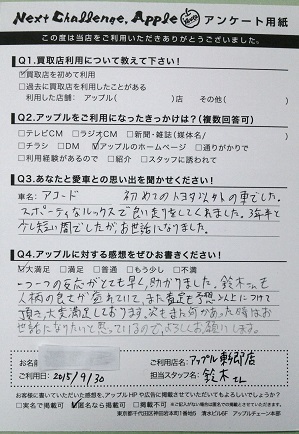 Next Challenge, Apple アンケート用紙
この度は当店をご利用いただきありがとうございました。
Q1.買取店利用について教えて下さい!
☑買取店を初めて利用
□過去に買取店を利用したことがある
利用した店舗: アップル( )店 その他( )
Q2.アップルをご利用になったきっかけは?(複数回答可)
□テレビCM □ラジオCM □新聞・雑誌(媒体名/ )
□チラシ □DM ☑アップルのホームページ □通りがかりで
□利用経験があるので □紹介 □スタッフに誘われて
Q3.あなたと愛車との思い出を聞かせください!
車名: アコード 初めてのトヨタ以外の車でした。
スポーティなルックスで良い走りをしてくれました。3年半と
少し短い間でしたがお世話になりました。
Q4.アップルに対する感想をぜひお書きください!
☑大満足 □満足 □普通 □もう少し □不満
一つ一つの反応がとても早く助かりました。鈴木さんも
人柄の良さが溢れていて、また査定も予想以上につけて
頂き、大変満足しております。次もまた何かあった時はお
世話になりたいと思っているので、よろしくお願いします。
お名前
ご利用店名: アップル東郷店
ご利用日: 2015/9/30 担当スタッフ名: 鈴木さん
お客様に書いていただいた感想を、アップルHPや広告に掲載させていただいてもよろしいでしょうか?
□実名で掲載可 ☑匿名なら掲載可 □掲載不可
東京都千代田区神田岩本町1番地5 清水ビル6F アップルチェーン本部